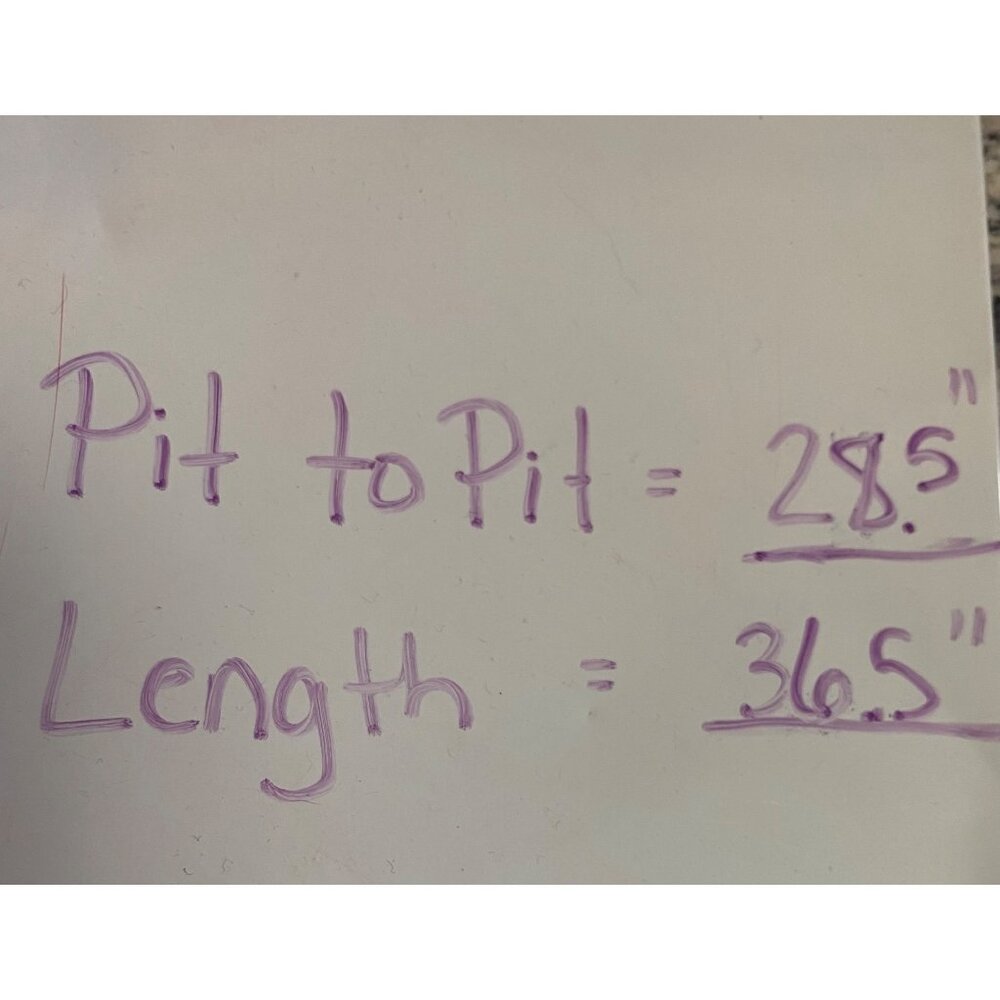 Pit to Pit = 28.5"
Length = 36.5"